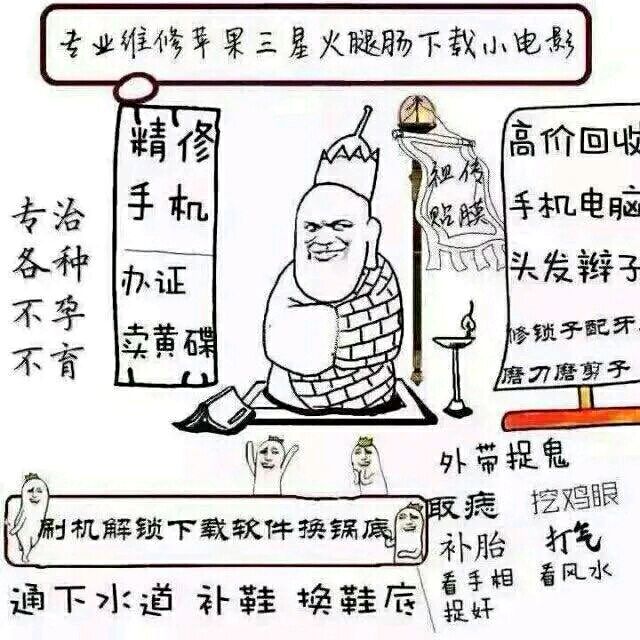 专业维修苹果三星火腿肠下载小电影
精修
手机
办证
卖黄碟
专治
各种
不孕
不育
祖传
贴膜
高价回收
手机电脑
头发辫子
修锁子配牙
磨刀磨剪子
外带捉鬼
取痣 挖鸡眼
补胎 打气
看手相 看风水
捉奸
刷机解锁下载软件换锅底
通下水道 补鞋 换鞋底